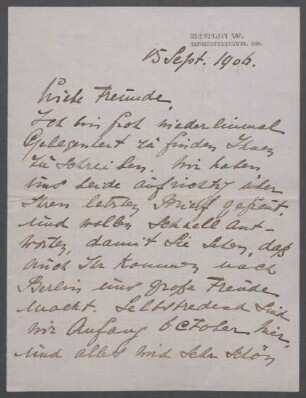 BERLIN W.
15 Sept. 1906.
Liebe Freunde,
Ich bin froh wieder einmal
Gelegenheit zu finden Ihnen
zu schreiben. Wir haben
uns beide aufrichtig über
Ihren letzten Brief gefreut,
und wollen schnell Ant-
worten, damit Sie sehen, daß
auch Ihr Kommen nach
Berlin uns große Freude
macht. Selbstredend sind
wir Anfang October hier,
und alles wird sehr schön